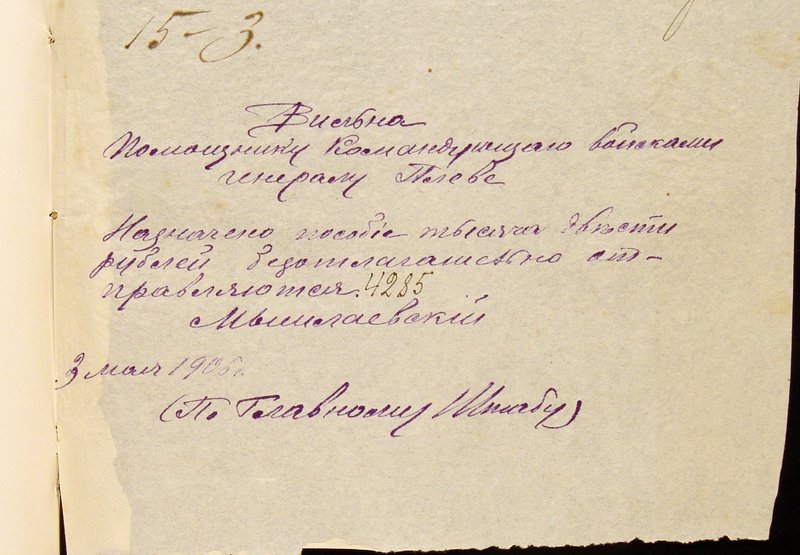 15-3.
Вильна
Помощнику Командующаго войсками
генералу Плеве
Назначено пособіе тысяча двѣсти
рублей безотлагательно от-
правляются. 4285
Мышлаевскій
3 мая 1906 г.
(По Главному Штабу)